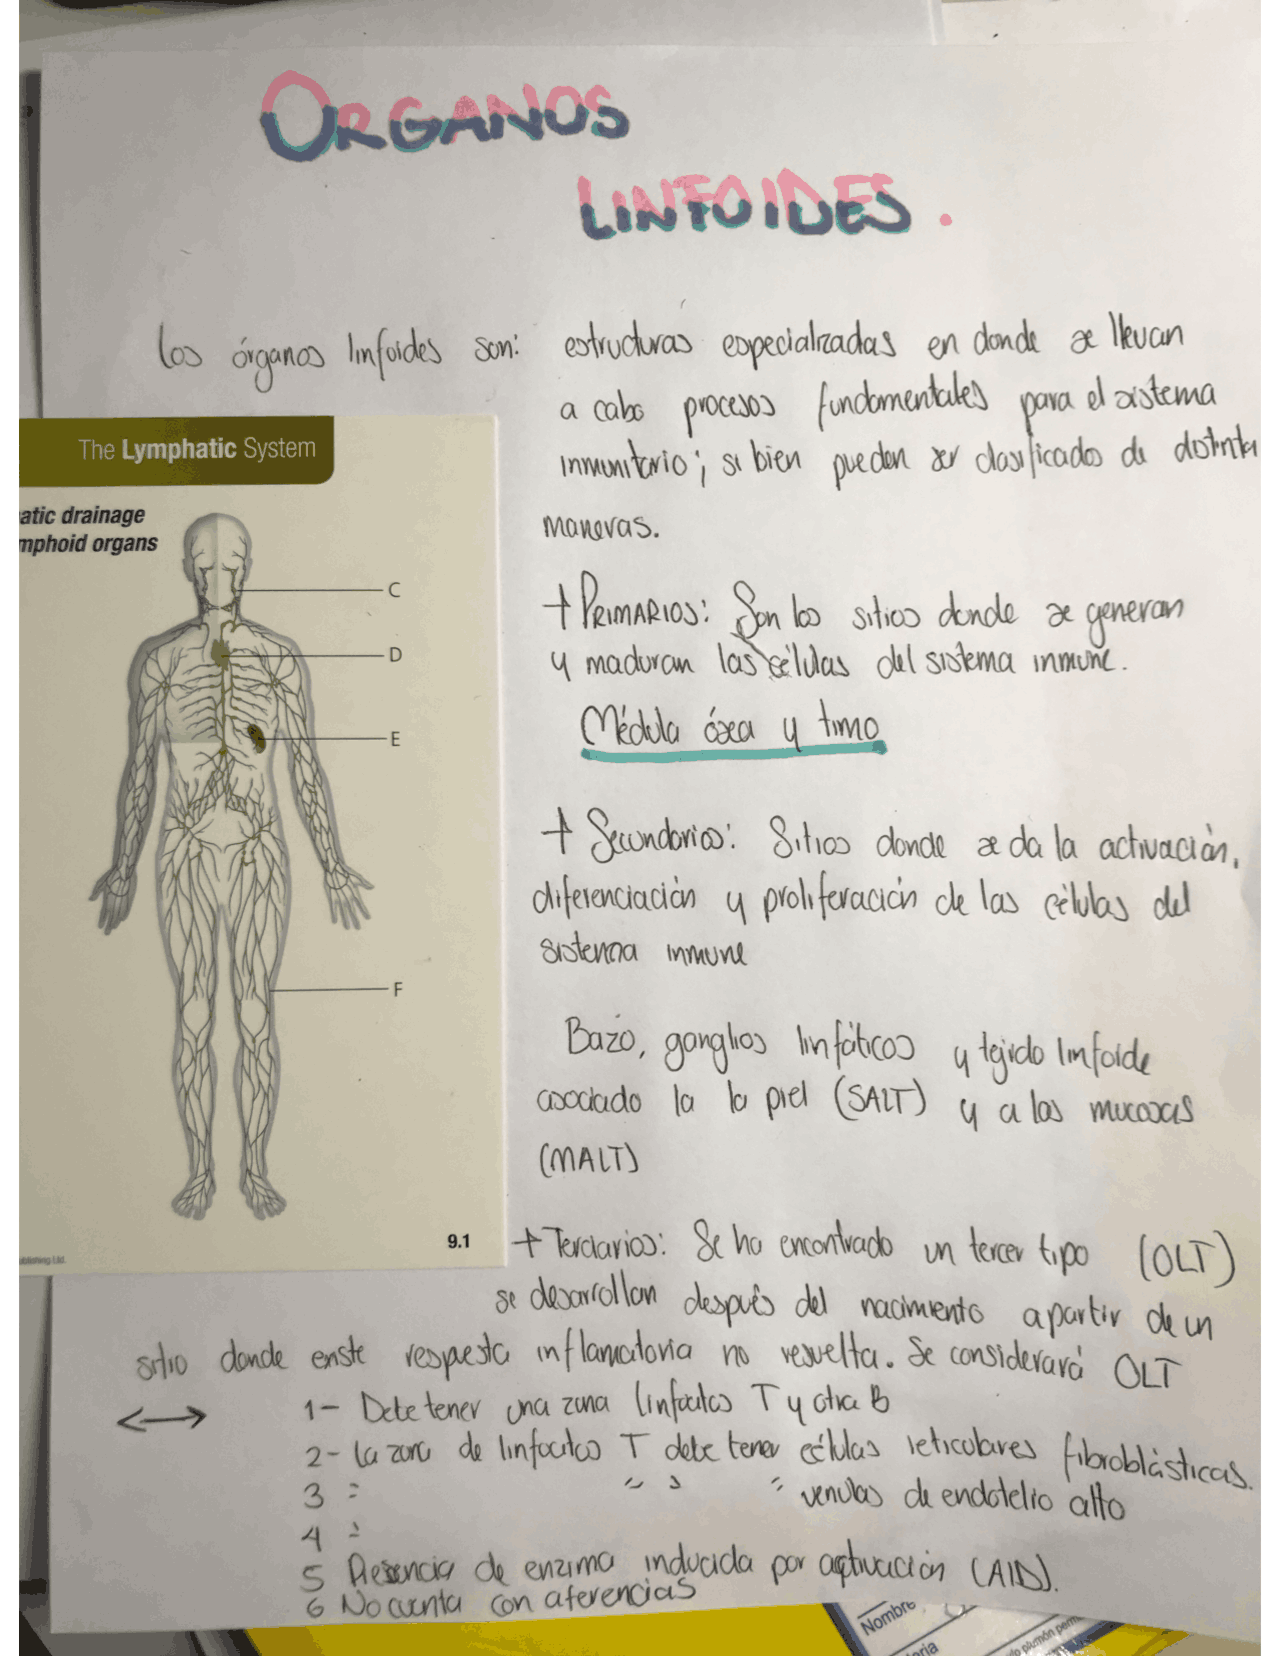 ORGANOS
LINFOIDES.
Los órganos linfoides son: estructuras especializadas en donde se llevan
a cabo procesos fundamentales para el sistema
inmunitario; si bien pueden ser clasificados de distinta
maneras.
The Lymphatic System
atic drainage
mphoid organs
C
D
E
F
9.1
ublishing Ltd.
+ PRIMARIOS: Son los sitios donde se generan
y maduran las células del sistema inmune.
Médula ósea y timo
+ Secundarios: Sitios donde se da la activación,
diferenciación y proliferación de las células del
sistema inmune
Bazo, ganglios linfáticos y tejido linfoide
asociado la la piel (SALT) y a las mucosas
(MALT)
+ Terciarios: Se ha encontrado un tercer tipo (OLT)
se desarrollan después del nacimiento a partir de un
sitio donde existe respuesta inflamatoria no resuelta. Se considerará OLT
1- Debe tener una zona linfocitos T y otra B
2- La zona de linfocitos T debe tener células reticulares fibroblásticas.
3 " " " " venulas de endotelio alto
4 "
5 Presencia de enzima inducida por activación (AID).
6 No cuenta con aferencias
Nombre
eria
do plumón perm